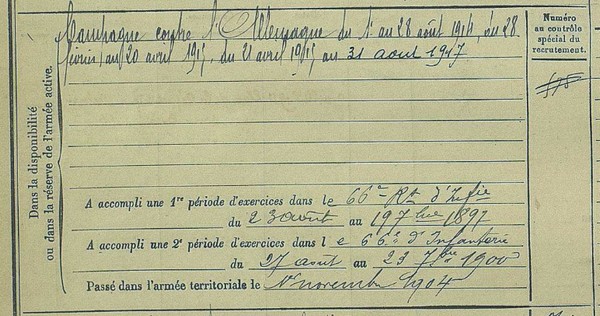 Campagne contre l'Allemagne du 1er au 28 août 1914, du 28
février au 20 avril 1915, du 21 avril 1915 au 31 aout 1917
Numéro
au contrôle
spécial du
recrutement.
Dans la disponibilité
ou dans la réserve de l'armée active.
A accompli une 1re période d'exercices dans le 66e Rt d'Infie
du 23 août au 19 7bre 1897
A accompli une 2e période d'exercices dans l e 66e d'Infanterie
du 27 août au 23 7bre 1900
Passé dans l'armée territoriale le 1er novembre 1904